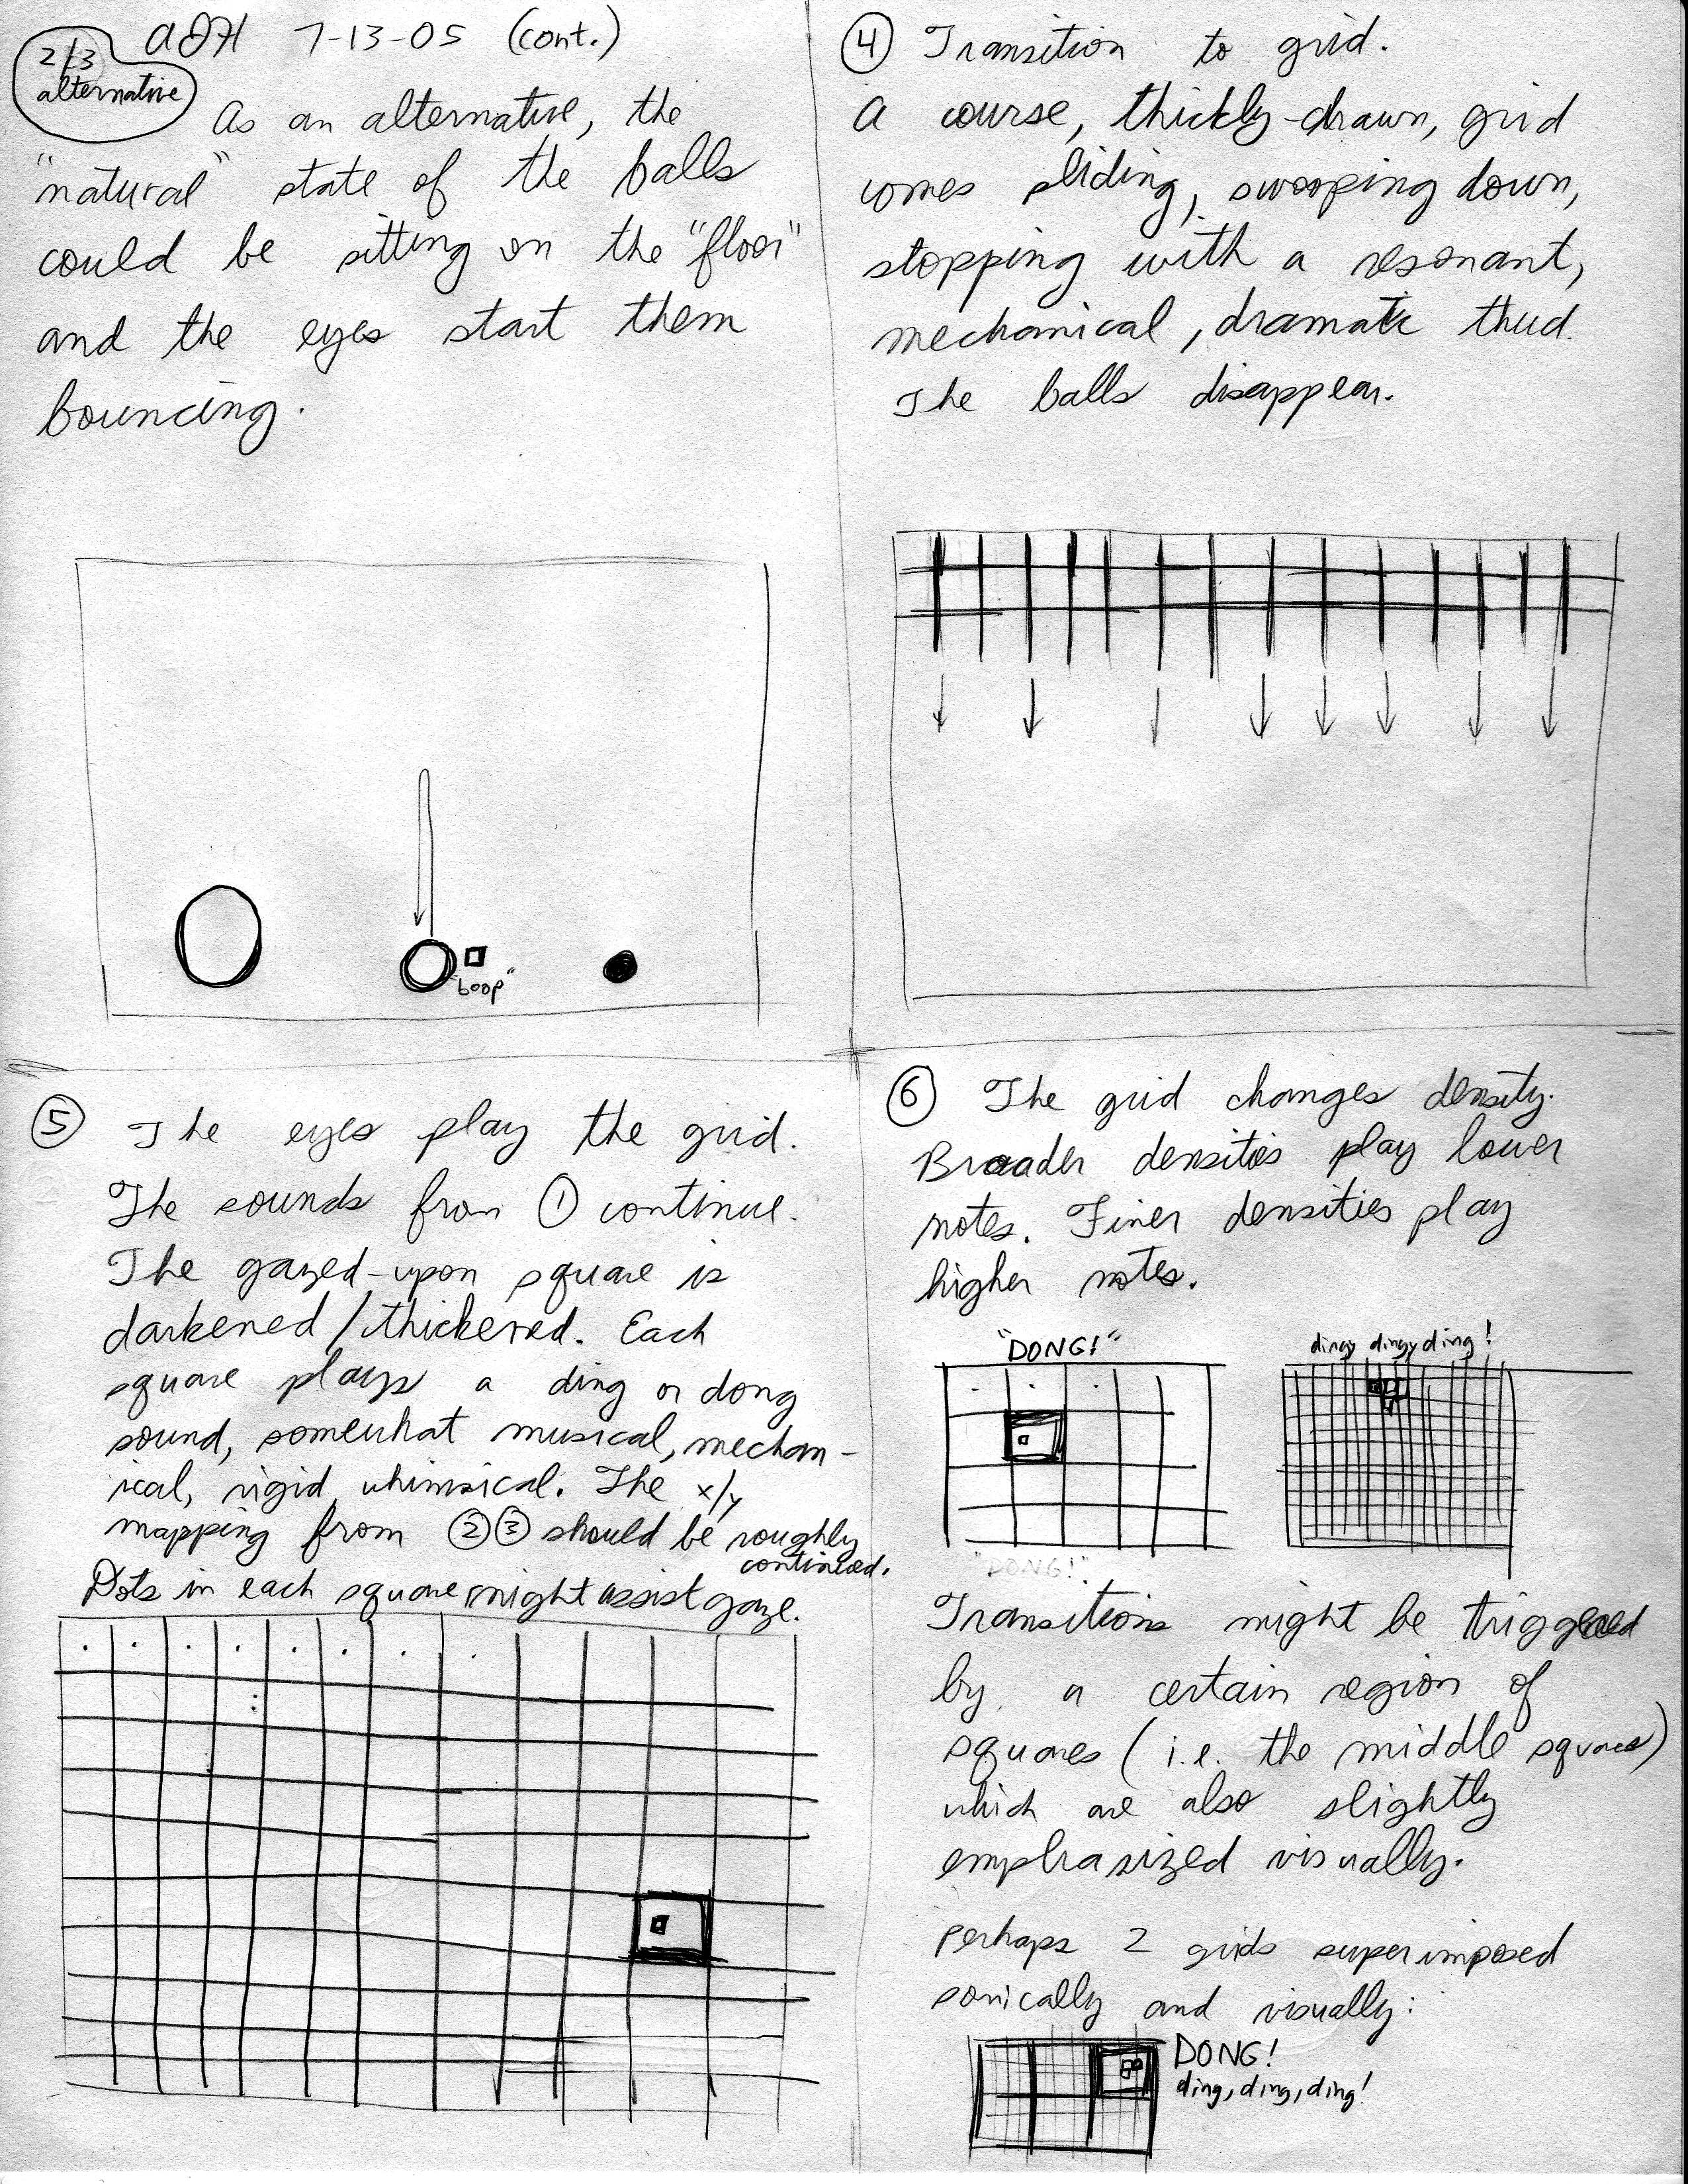 2/3
alternative
aJH 7-13-05 (cont.)
As an alternative, the
"natural" state of the balls
could be sitting on the "floor"
and the eyes start them
bouncing.
"boop"
4 Transition to grid.
A course, thickly-drawn, grid
comes sliding, swooping down,
stopping with a resonant,
mechanical, dramatic thud.
The balls disappear.
5 The eyes play the grid.
The sounds from 1 continue.
The gazed-upon square is
darkened/thickened. Each
square plays a ding or dong
sound, somewhat musical, mechan-
ical, rigid, whimsical. The x/y
mapping from 2 3 should be roughly
continued.
Dots in each square might assist gaze.
6 The grid changes density.
Broader densities play lower
notes. Finer densities play
higher notes.
"DONG!"
dingy dingy ding!
"DONG!"
Transitions might be triggered
by a certain region of
squares (i.e. the middle squares)
which are also slightly
emphasized visually.
perhaps 2 grids superimposed
sonically and visually:
DONG!
ding, ding, ding!